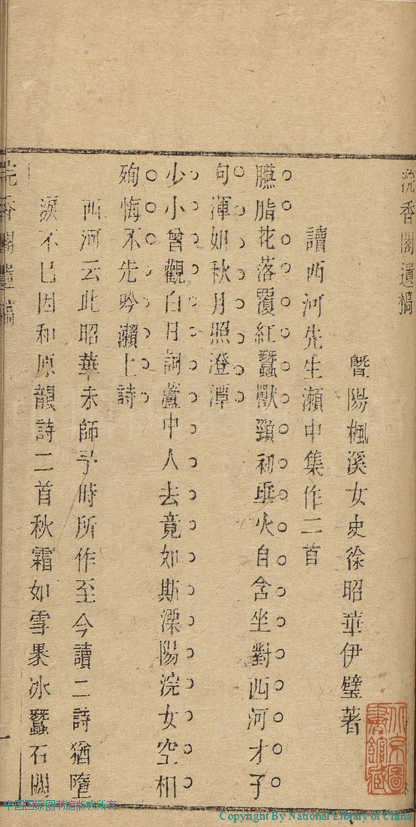 浣香閣遺稿
暨陽楓溪女史徐昭華伊璧著
讀西河先生瀨中集作二首
臙脂花落覆紅蠶獸頸初垂火自含坐對西河才子
句渾如秋月照澄潭
少小曾觀白月詞蘆中人去竟如斯溧陽浣女空相
殉悔不先吟瀨上詩
西河云此昭華未師予時所作至今讀二詩猶墮
淚不已因和原韻詩二首秋霜如雪裹冰蠶石闕
浣香閣遺稿
一
北京圖書館藏
中国国家图书馆版权所有
Copyright By National Library of China